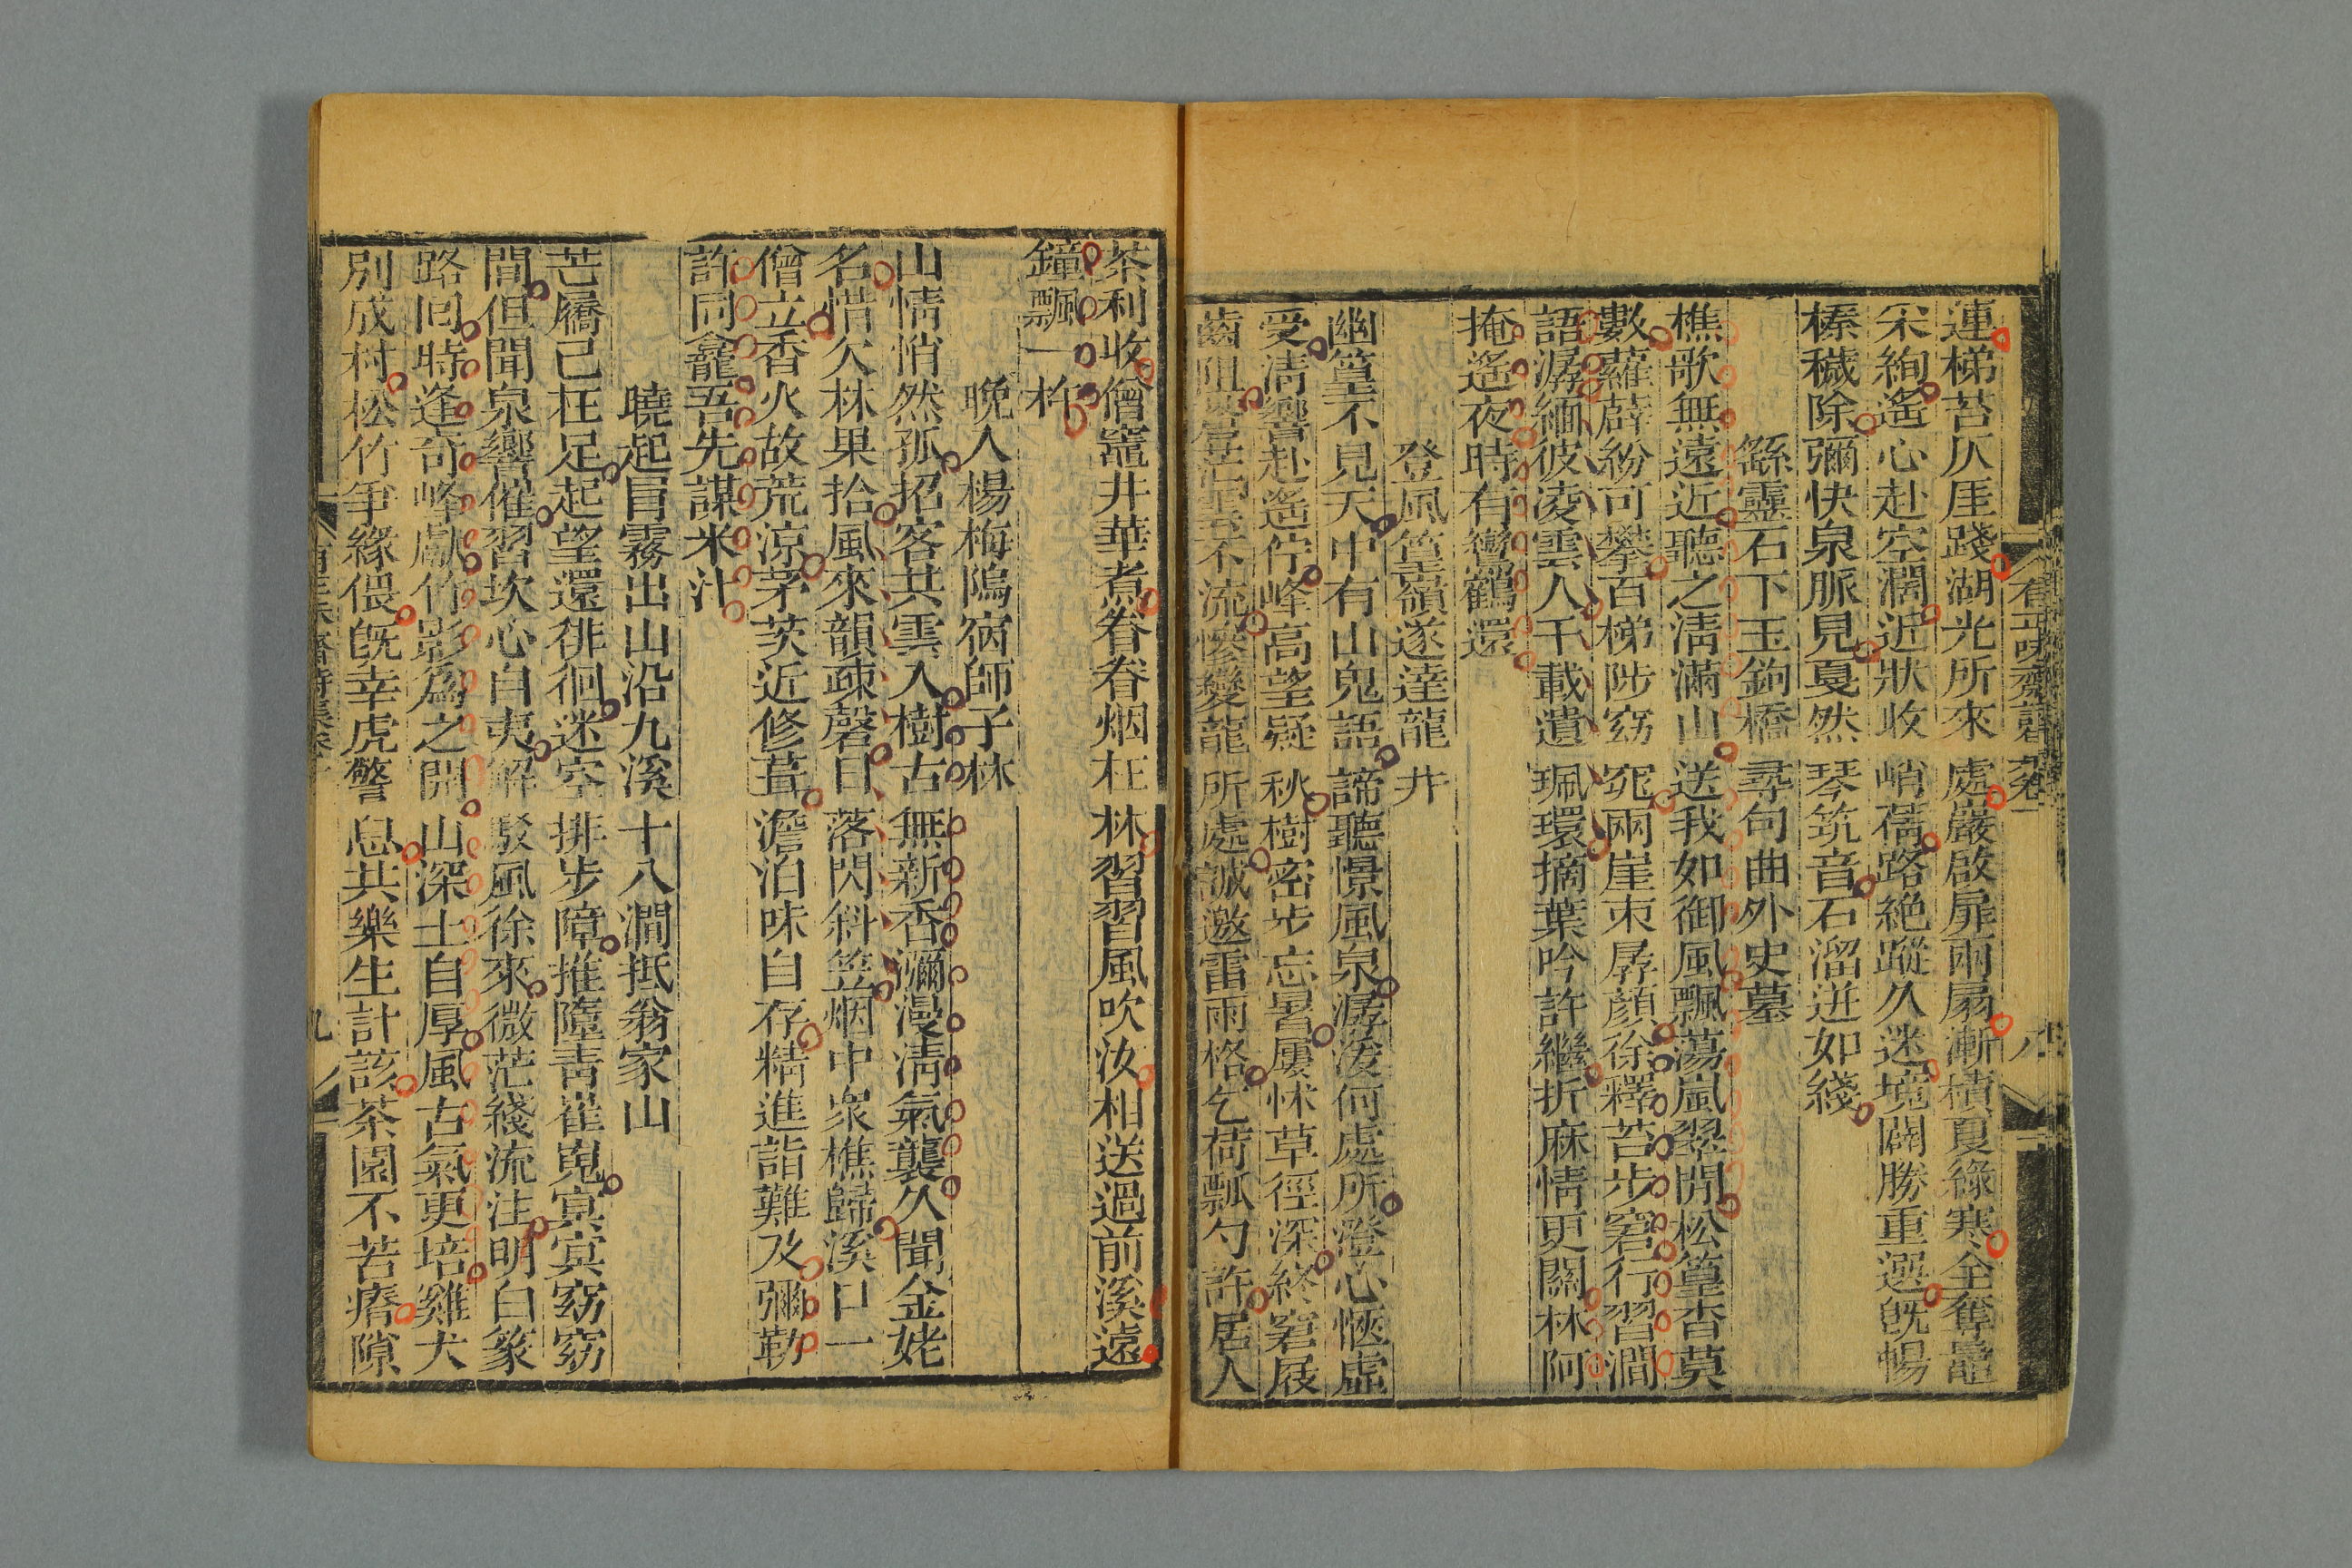 蓮梯苔仄厓踐湖光所來處巖啟扉兩扇漸積夏緣寒全奪鼂
采絢遙心赴空濶近狀收峭蒨路絕蹤久迷境闢勝重選既暢
榛穢除彌快泉脈見戛然琴筑音石溜迸如綫
繇靈石下玉鉤橋尋句曲外史墓
樵歌無遠近聽之淸滿山送我如御風飄蕩嵐翠閒松篁杳莫
數蘿薜紛可攀百梯陟窈窕兩崖束孱顏徐釋苔步窘行習澗
語潺緬彼凌雲人千載遺珮環摘葉吟許繼折麻情更關林阿
掩遙夜時有鸞鶴還
登風篁嶺遂達龍井
幽篁不見天中有山鬼語諦聽憬風泉潺湲何處所澄心愜虛
受淸響赴遙佇峰高望疑秋樹密步忘暑屢怵草徑深終窘屐
齒阻不流變龍所處誠邀雷雨格乞荷瓢勺許居人
茶利收僧竈井華煮眷眷烟在林習習風吹汝相送過前溪遠
鐘飄一杵
晚入楊梅塢宿師子林
山情悄然孤招客共雲入樹古無新香瀰漫淸氣襲久聞金姥
名惜欠林果拾風來韻疎磬日落閃斜笠烟中衆樵歸溪口一
僧立香火故荒涼茅茨近修葺澹泊味自存精進詣難及彌勒
許同龕吾先謀米汁
曉起冒霧出山沿九溪十八澗抵翁家山
芒屩己在足起望還徘徊迷空排步障推墮靑崔嵬宾宾窈窈
間但聞泉響催習坎心自夷解駁風徐來微茫綫流注明白篆
路回時逢奇峰獻竹影為之開山深土自厚風古氣更培雞犬
別成村松竹爭緣偎旣幸虎警息共樂生計該茶園不苦瘠隙